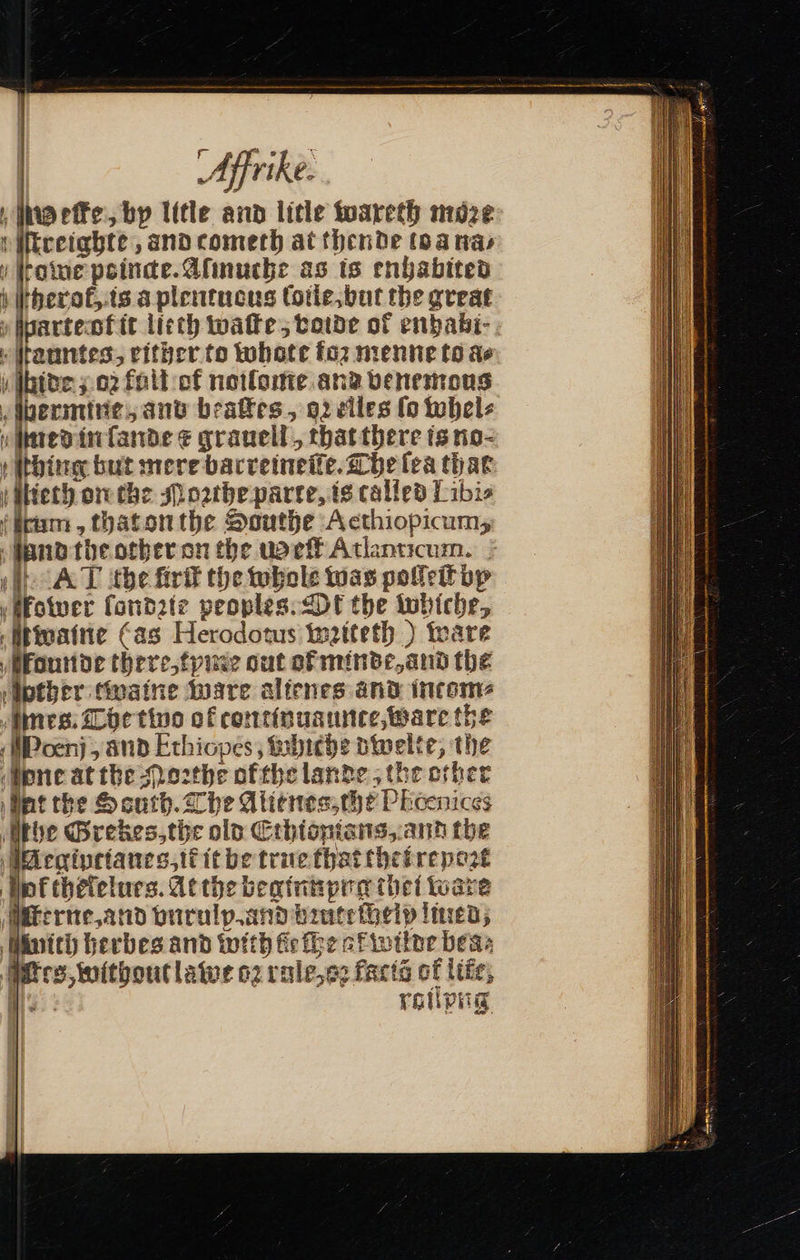 Affrike.
westte, by litle and litle wareth more
streighte, and cometh at thende to a na-
rowe poincte. Asmuche as is enhabited
therof, is a plentuous soile, but the great
parte of it lieth waste, voide of enhabi-
tauntes, either to whote for menne to a-
bide, or full of noisome and venemous
vermine, and beastes, or elles so whel-
med in sande & grauell, that there is no-
thing but mere barreinesse. The sea that
lieth on the Northe parte, is called Libi-
cum, that on the Southe Aethiopicum,
and the other on the west Atlanticum.
AT the first the whole was possest by
fower sondrie peoples. Of the whiche,
twaine (as Herodotus writeth) ware
founde there, tyme out of minde, and the
other twaine ware alienes and incom-
mes. The two of continuaunce, ware the
Poeni, and Ethiopes, whiche dwelte, the
one at the Northe of the lande, the other
at the South. The Alienes, the Phoenices
the Grekes, the old Ethiopians, and the
Aegiptianes, if it be true that thei report
of theselues. At the beginnyng thei ware
sterne, and vnruly, and bruteshely liued,
with herbes and with fleshe of wilde bea-
stes, without lawe or rule, or facio of life,
roilyng